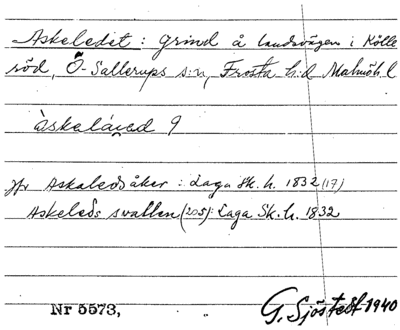 Askeledet: grind å landsvägen i Kölle
röd, Ö. Sallerups s:n, Frosta h:d Malmöh. l
àskelá̤ed 9
jfr Askaledsåker: Laga Sk. h. 1832 (17)
Askeleds vallen (205): Laga Sk. h. 1832
Nr 5573, G. Sjöstedt 1940